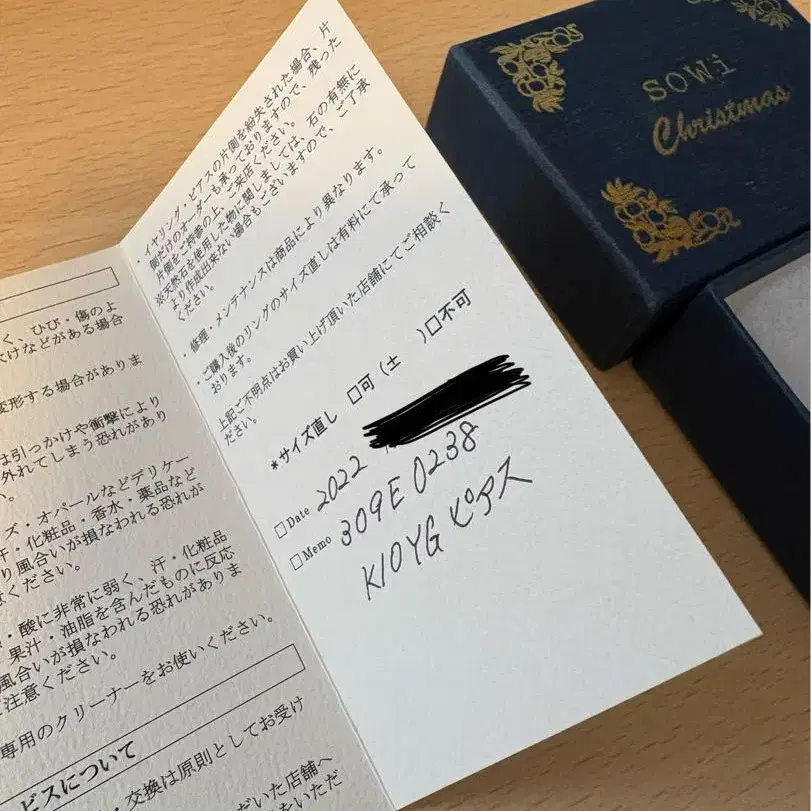 く、ひび・傷のよ
欠けなどがある場合
変形する場合がありま
は引っかけや衝撃により
外れてしまう恐れがあり
ズ・オパールなどデリケー
汗・化粧品・香水・薬品など
り風合いが損なわれる恐れが
意ください。
・酸に非常に弱く、汗・化粧品
果汁・油脂を含んだものに反応
風合いが損なわれる恐れがありま
ご注意ください。
専用のクリーナーをお使いください。
ビスについて
・交換は原則としてお受け
だいた店舗へ
をいただ
・イヤリング・ピアスの片側を紛失された場合、片
側だけのオーダーも承っておりますので、残った
片側をご持参の上、ご来店ください。
※天然石を使用した物に関しましては、石の有無に
より作成出来ない場合もございますので、ご了承
ください。
・修理・メンテナンスは商品により異なります。
・ご購入後のリングのサイズ直しは有料にて承って
おります。
上記ご不明点はお買い上げ頂いた店舗にてご相談く
ださい。
*サイズ直し □可(± )□不可
□Date 2022
□Memo 309E0238
K10YG ピアス
SOWi
Christmas